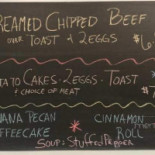 REAMED CHIPPED BEEF
OVER TOAST & 2 EGGS $6
TATO CAKES · 2 EGGS · TOAST
& CHOICE OF MEAT $
NANA PECAN CINNAMON
FFEECAKE ROLL
SOUP: STUFFED PEPPER